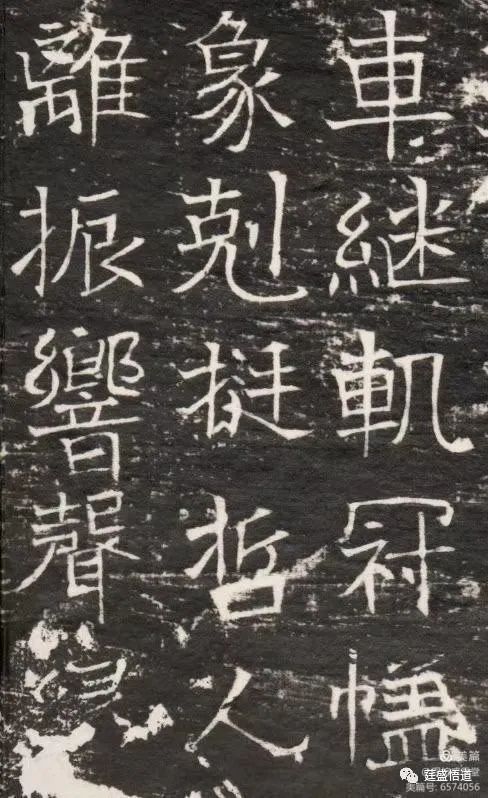 車継軌冠
象剋挺哲人
離振響聲
美篇
廷盛悟道
美篇号: 6574056